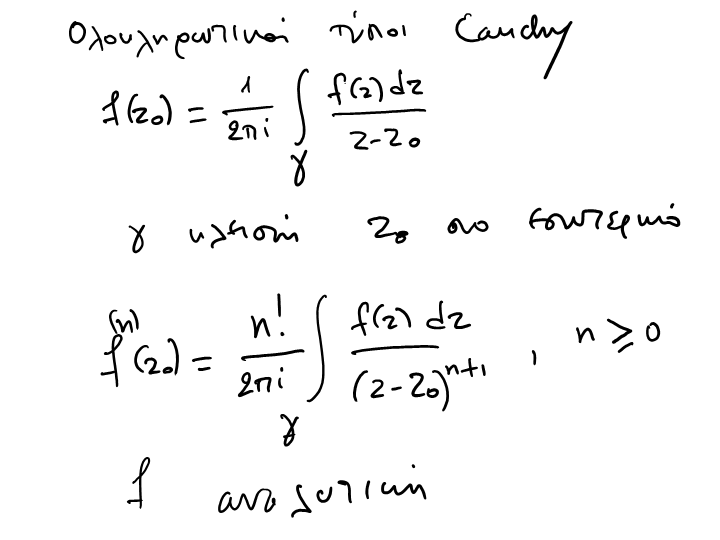 Ολοκληρωτικοί τύποι Cauchy
f(z₀) = 1/2πi ∫_γ f(z)dz/z-z₀
γ κλειστή z₀ στο εσωτερικό
f⁽ⁿ⁾(z₀) = n!/2πi ∫_γ f(z) dz/(z-z₀)ⁿ⁺¹ , n ≥ 0
f αναλυτική